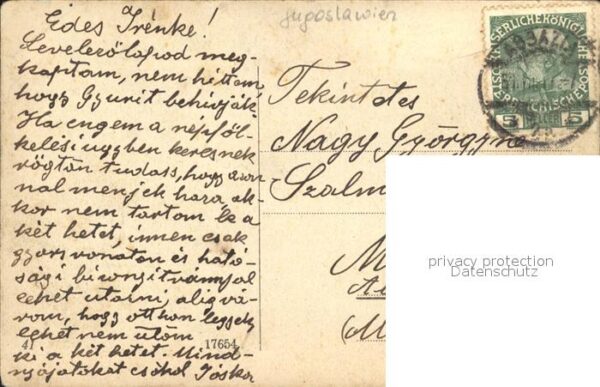 Jugoslawien
Édes Irénke!
Levelezőlapod meg-
kaptam, nem hittem
hogy Gyurit behívják.
Ha engem a népföl-
kelési ügyben keresnek
rögtön tudass, hogy azon-
nal menjek haza, ak-
kor nem tartom ki a
két hetet, innen csak
gyorsvonaton és ható-
sági bizonyítvánnyal
lehet utazni, alig vá-
rom, hogy otthon legyek
lehet nem ütöm
ki a két hetet. Mind-
nyájatokat csókol Jóska
41
17654
ABBAZIA
KAISERLICHE KÖNIGLICHE
5 HELLER 5
Tekintetes
Nagy Györgyné
Szalm
M
(M
privacy protection
Datenschutz